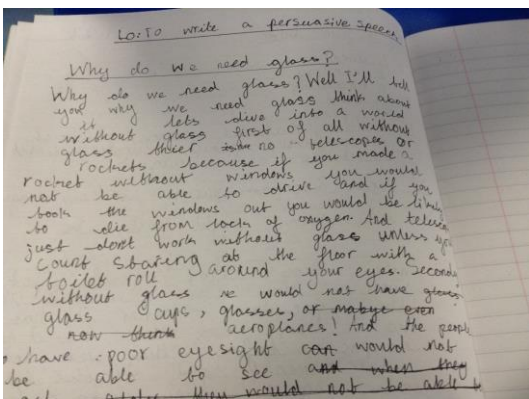 LO: To write a persuasive speech
Why do we need glass?
Why do we need glass? Well I'll tell
you why we need glass think about
it lets dive into a world
without glass first of all without
glass theer no telescopes or
rockets because if you made a
rocket without windows you would
not be able to drive and if you
took the windows out you would be likely
to die from lack of oxygen. And telesc
just don't work without glass unless you
count staring at the floor with a
toilet roll around your eyes. Second
without glass we would not have glass
glass cups, glasses, or mabye even
now think aeroplanes! And the people
have poor eyesight can would not
be able to see and when they
would not be able t